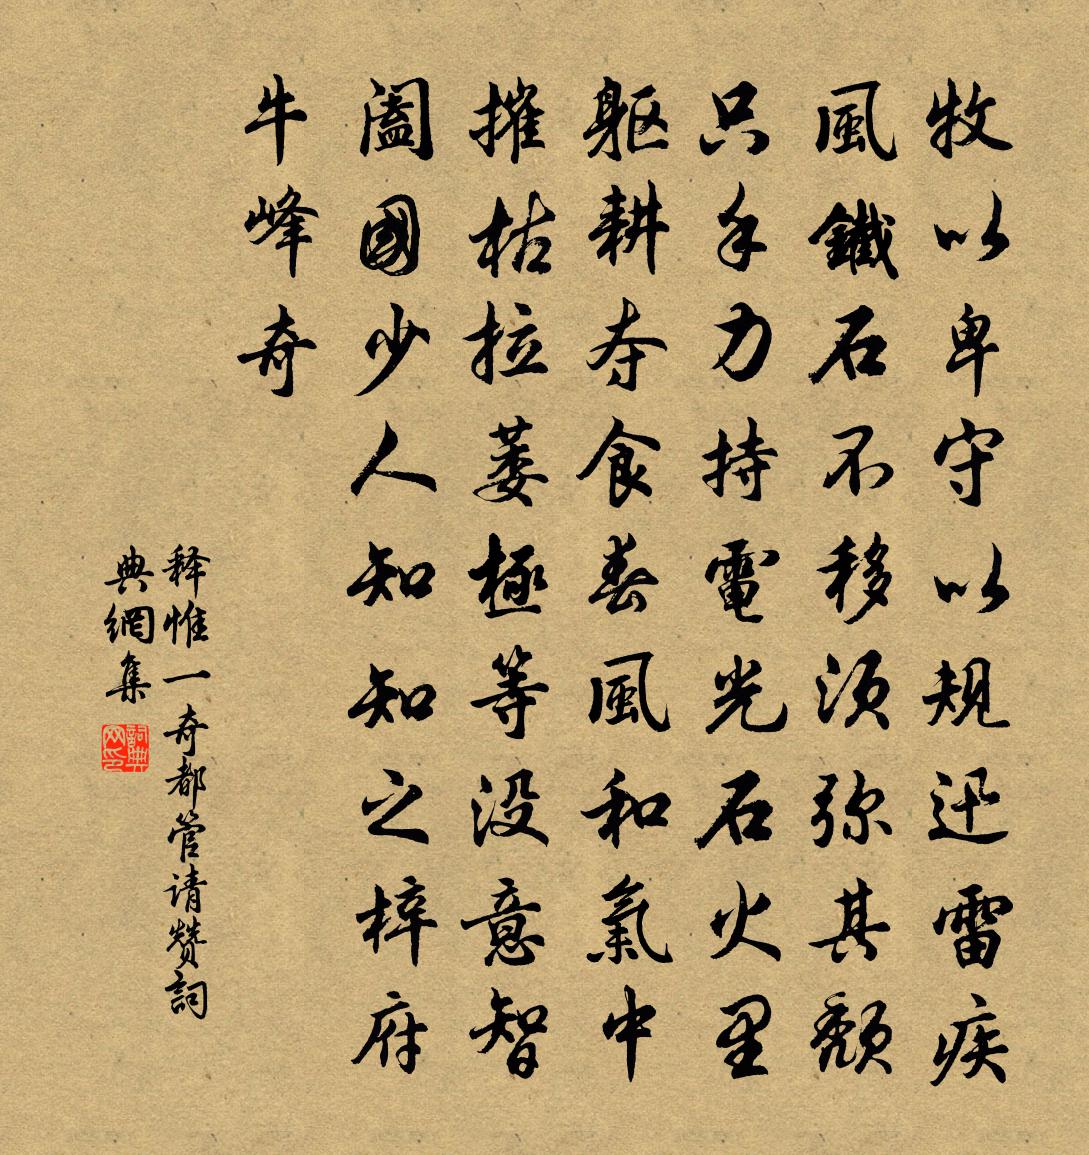 牧以卑守以規迅雷疾
風鐵石不移須弥其頽
只手力持電光石火里
軀耕夺食春風和氣中
摧枯拉萎極等没意智
阖國少人知知之梓府
牛峰奇
释惟一奇都管请赞詞
典網集
詞典網印